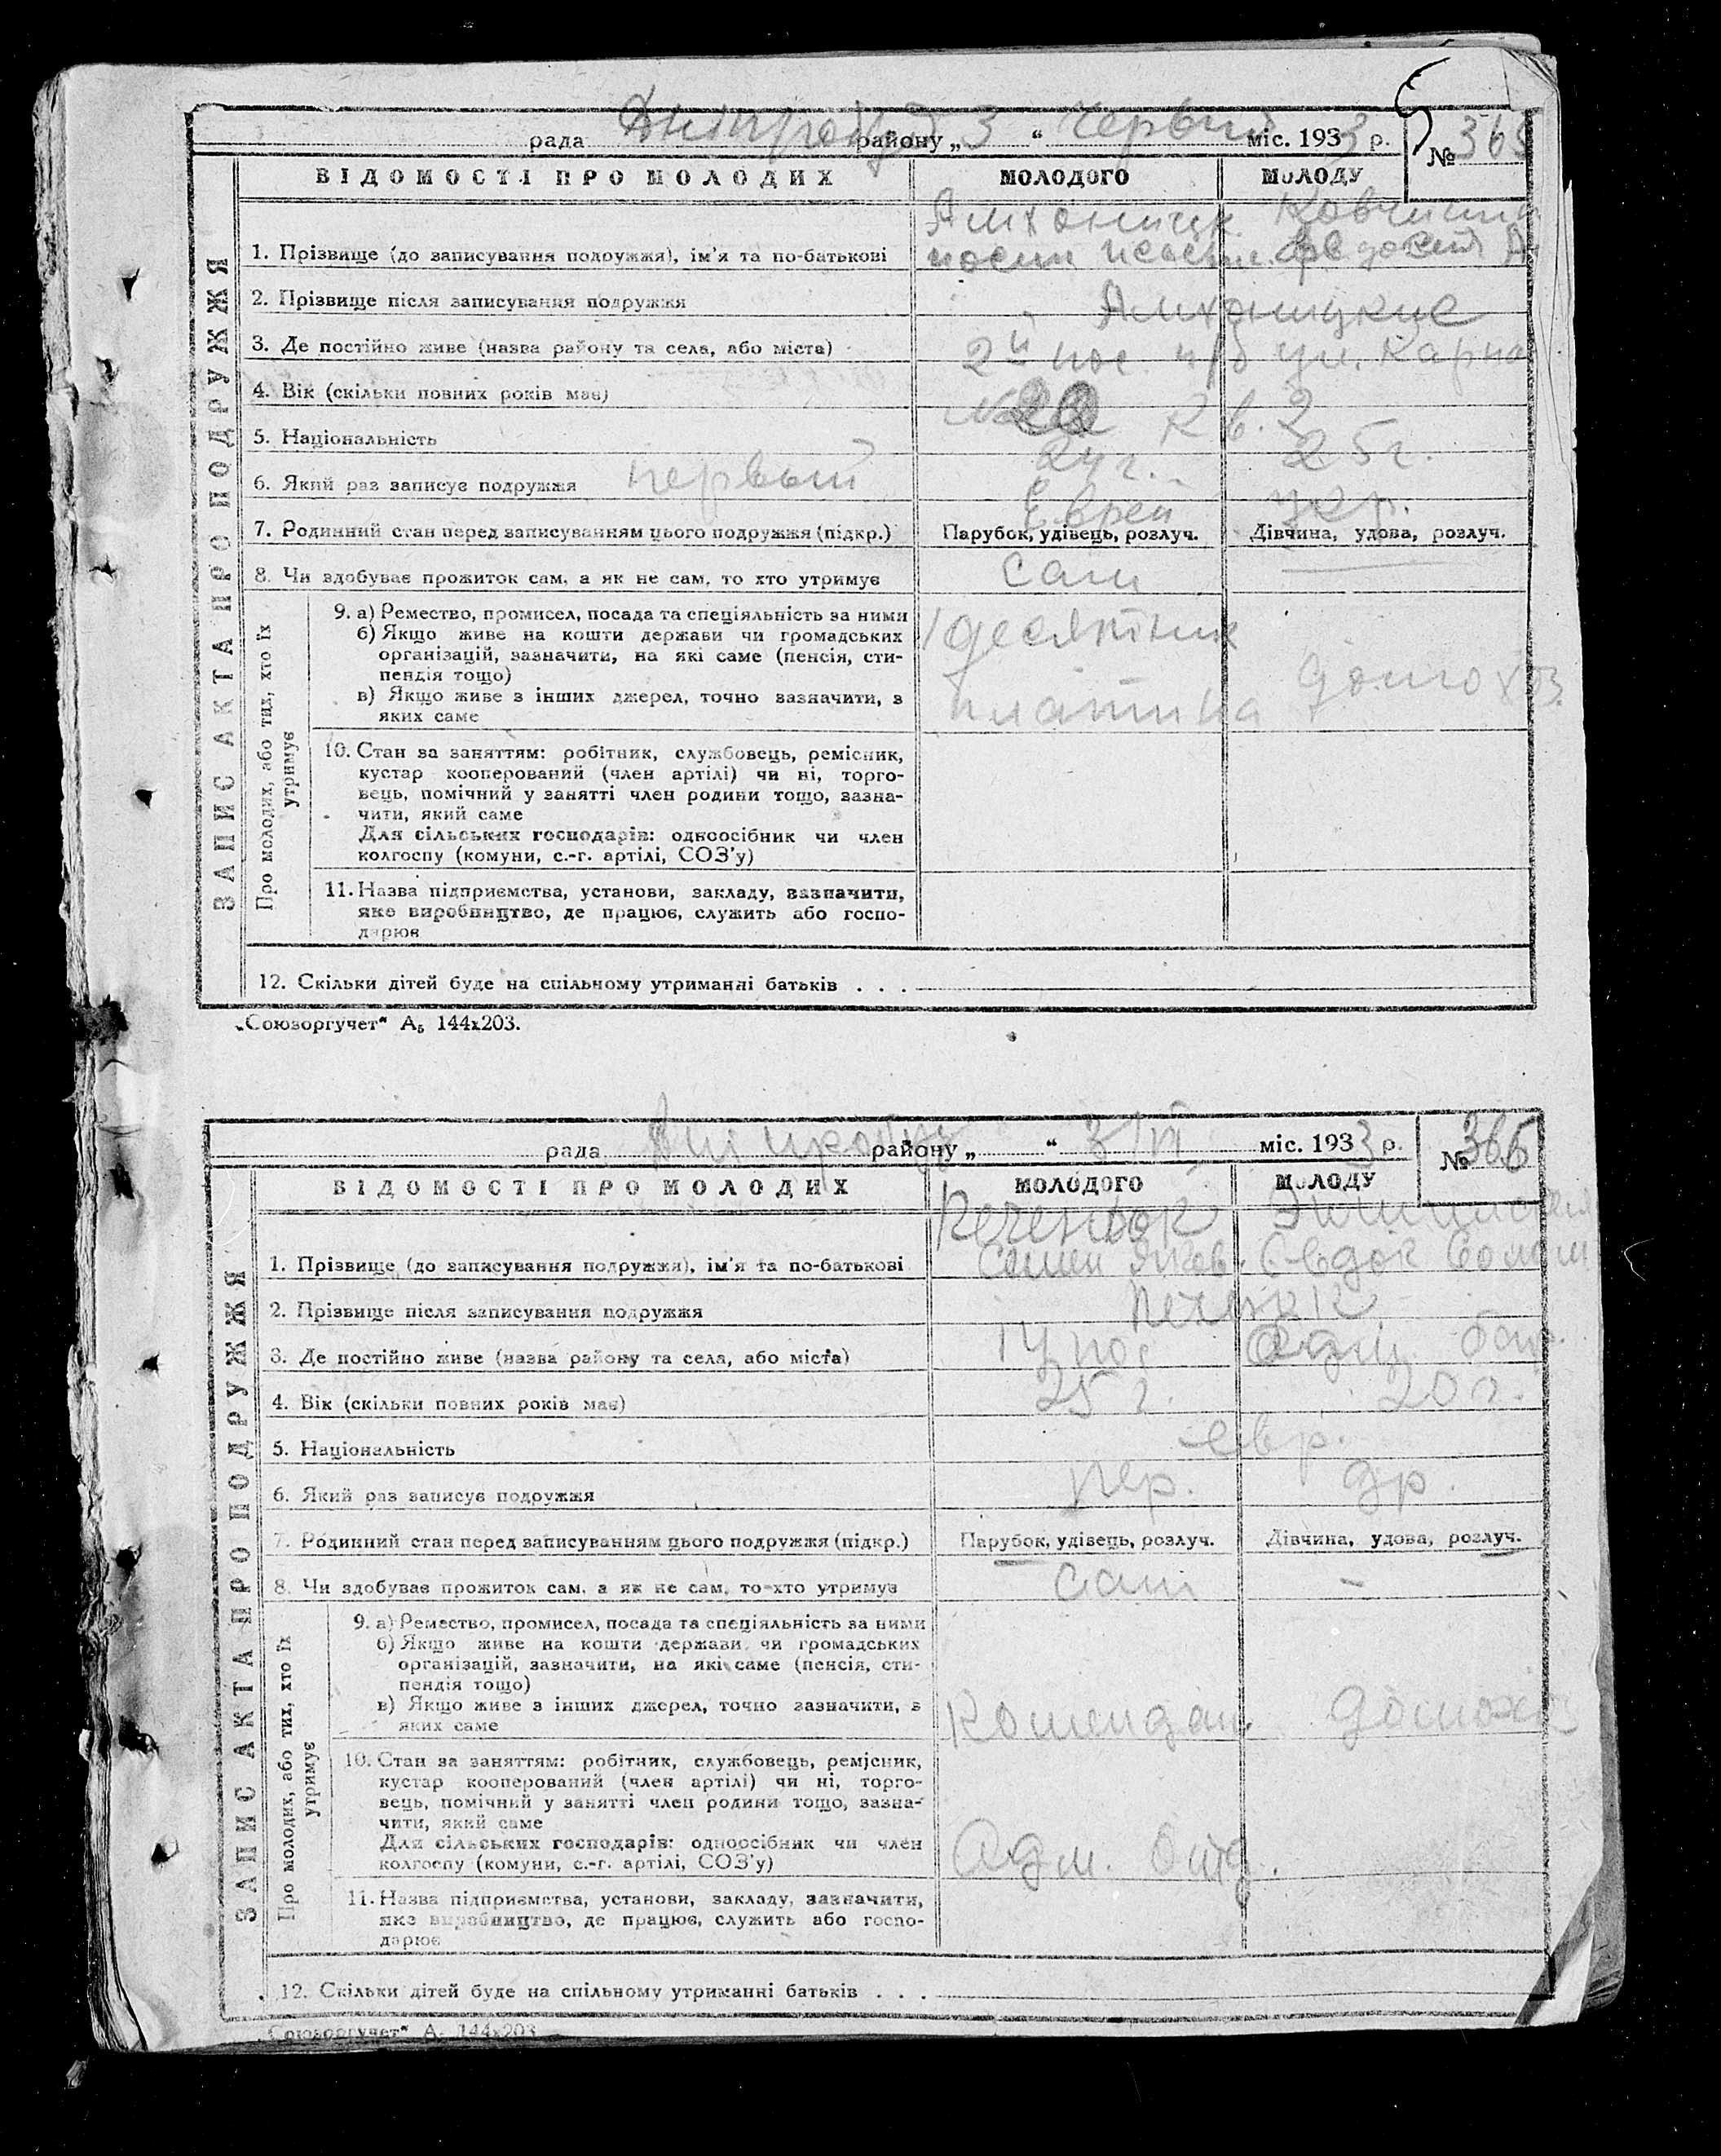 рада району „ 3 “ Червня міс. 1933 р. № 365
ЗАПИС АКТА ПРО ПОДРУЖЖЯ
ВІДОМОСТІ ПРО МОЛОДИХ МОЛОДОГО МОЛОДУ
1. Прізвище (до записування подружжя), ім'я та по-батькові
2. Прізвище після записування подружжя
3. Де постійно живе (назва району та села, або міста) 2й пос. ул.
4. Вік (скільки повних років має) № кв. 2
5. Національність 24 г. 25 г.
6. Який раз записує подружжя первый Еврей укр.
7. Родинний стан перед записуванням цього подружжя (підкр.) Парубок, удівець, розлуч. Дівчина, удова, розлуч.
8. Чи здобуває прожиток сам, а як не сам, то хто утримує Сам
Про молодих, або тих, хто їх утримує
9. а) Ремество, промисел, посада та спеціяльність за ними
б) Якщо живе на кошти держави чи громадських
організацій, зазначити, на які саме (пенсія, сти-
пендія тощо)
в) Якщо живе з інших джерел, точно зазначити, з
яких саме
десятник
домохоз.
плотина
10. Стан за заняттям: робітник, службовець, ремісник,
кустар кооперований (член артілі) чи ні, торго-
вець, помічний у занятті член родини тощо, зазна-
чити, який саме
Для сільських господарів: одноосібник чи член
колгоспу (комуни, с.-г. артілі, СОЗ'у)
11. Назва підприємства, установи, закладу, зазначити,
яке виробництво, де працює, служить або госпо-
дарює
12. Скільки дітей буде на спільному утриманні батьків . . .
„Союзоргучет“ А5 144х203.
рада району „ “ 3/VI міс. 1933 р. № 366
ЗАПИС АКТА ПРО ПОДРУЖЖЯ
ВІДОМОСТІ ПРО МОЛОДИХ МОЛОДОГО МОЛОДУ
1. Прізвище (до записування подружжя), ім'я та по-батькові Семен Яков. Евдок
2. Прізвище після записування подружжя
3. Де постійно живе (назва району та села, або міста) пос
4. Вік (скільки повних років має) 25 г. 20 г.
5. Національність евр.
6. Який раз записує подружжя пер. др.
7. Родинний стан перед записуванням цього подружжя (підкр.) Парубок, удівець, розлуч. Дівчина, удова, розлуч.
8. Чи здобуває прожиток сам, а як не сам, то хто утримує Сам –
Про молодих, або тих, хто їх утримує
9. а) Ремество, промисел, посада та спеціяльність за ними
б) Якщо живе на кошти держави чи громадських
організацій, зазначити, на які саме (пенсія, сти-
пендія тощо)
в) Якщо живе з інших джерел, точно зазначити, з
яких саме
Комендан. домохоз
10. Стан за заняттям: робітник, службовець, ремісник,
кустар кооперований (член артілі) чи ні, торго-
вець, помічний у занятті член родини тощо, зазна-
чити, який саме
Для сільських господарів: одноосібник чи член
колгоспу (комуни, с.-г. артілі, СОЗ'у)
Адм. Отд.
11. Назва підприємства, установи, закладу, зазначити,
яке виробництво, де працює, служить або госпо-
дарює
12. Скільки дітей буде на спільному утриманні батьків . . .
„Союзоргучет“ А5 144х203